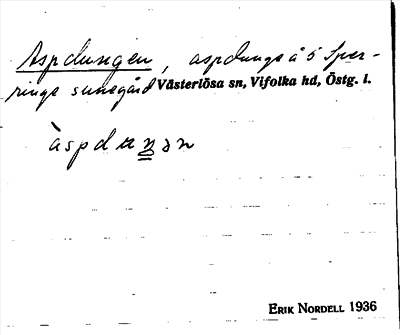 Aspdungen, aspdungsås Sper-
rings sunegård Västerlösa sn, Vifolka hd, Östg. l.
àspduŋən
ERIK NORDELL 1936